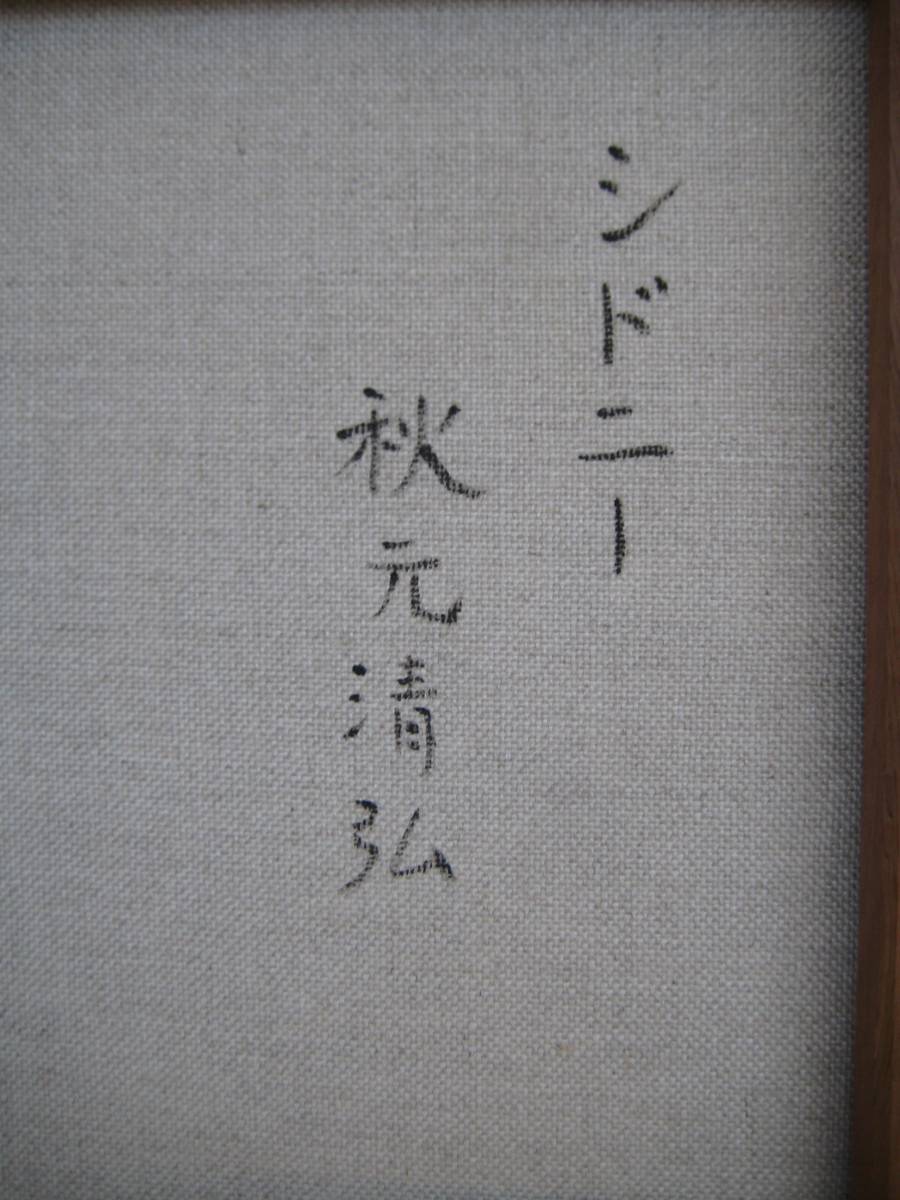 シドニー
秋元清弘